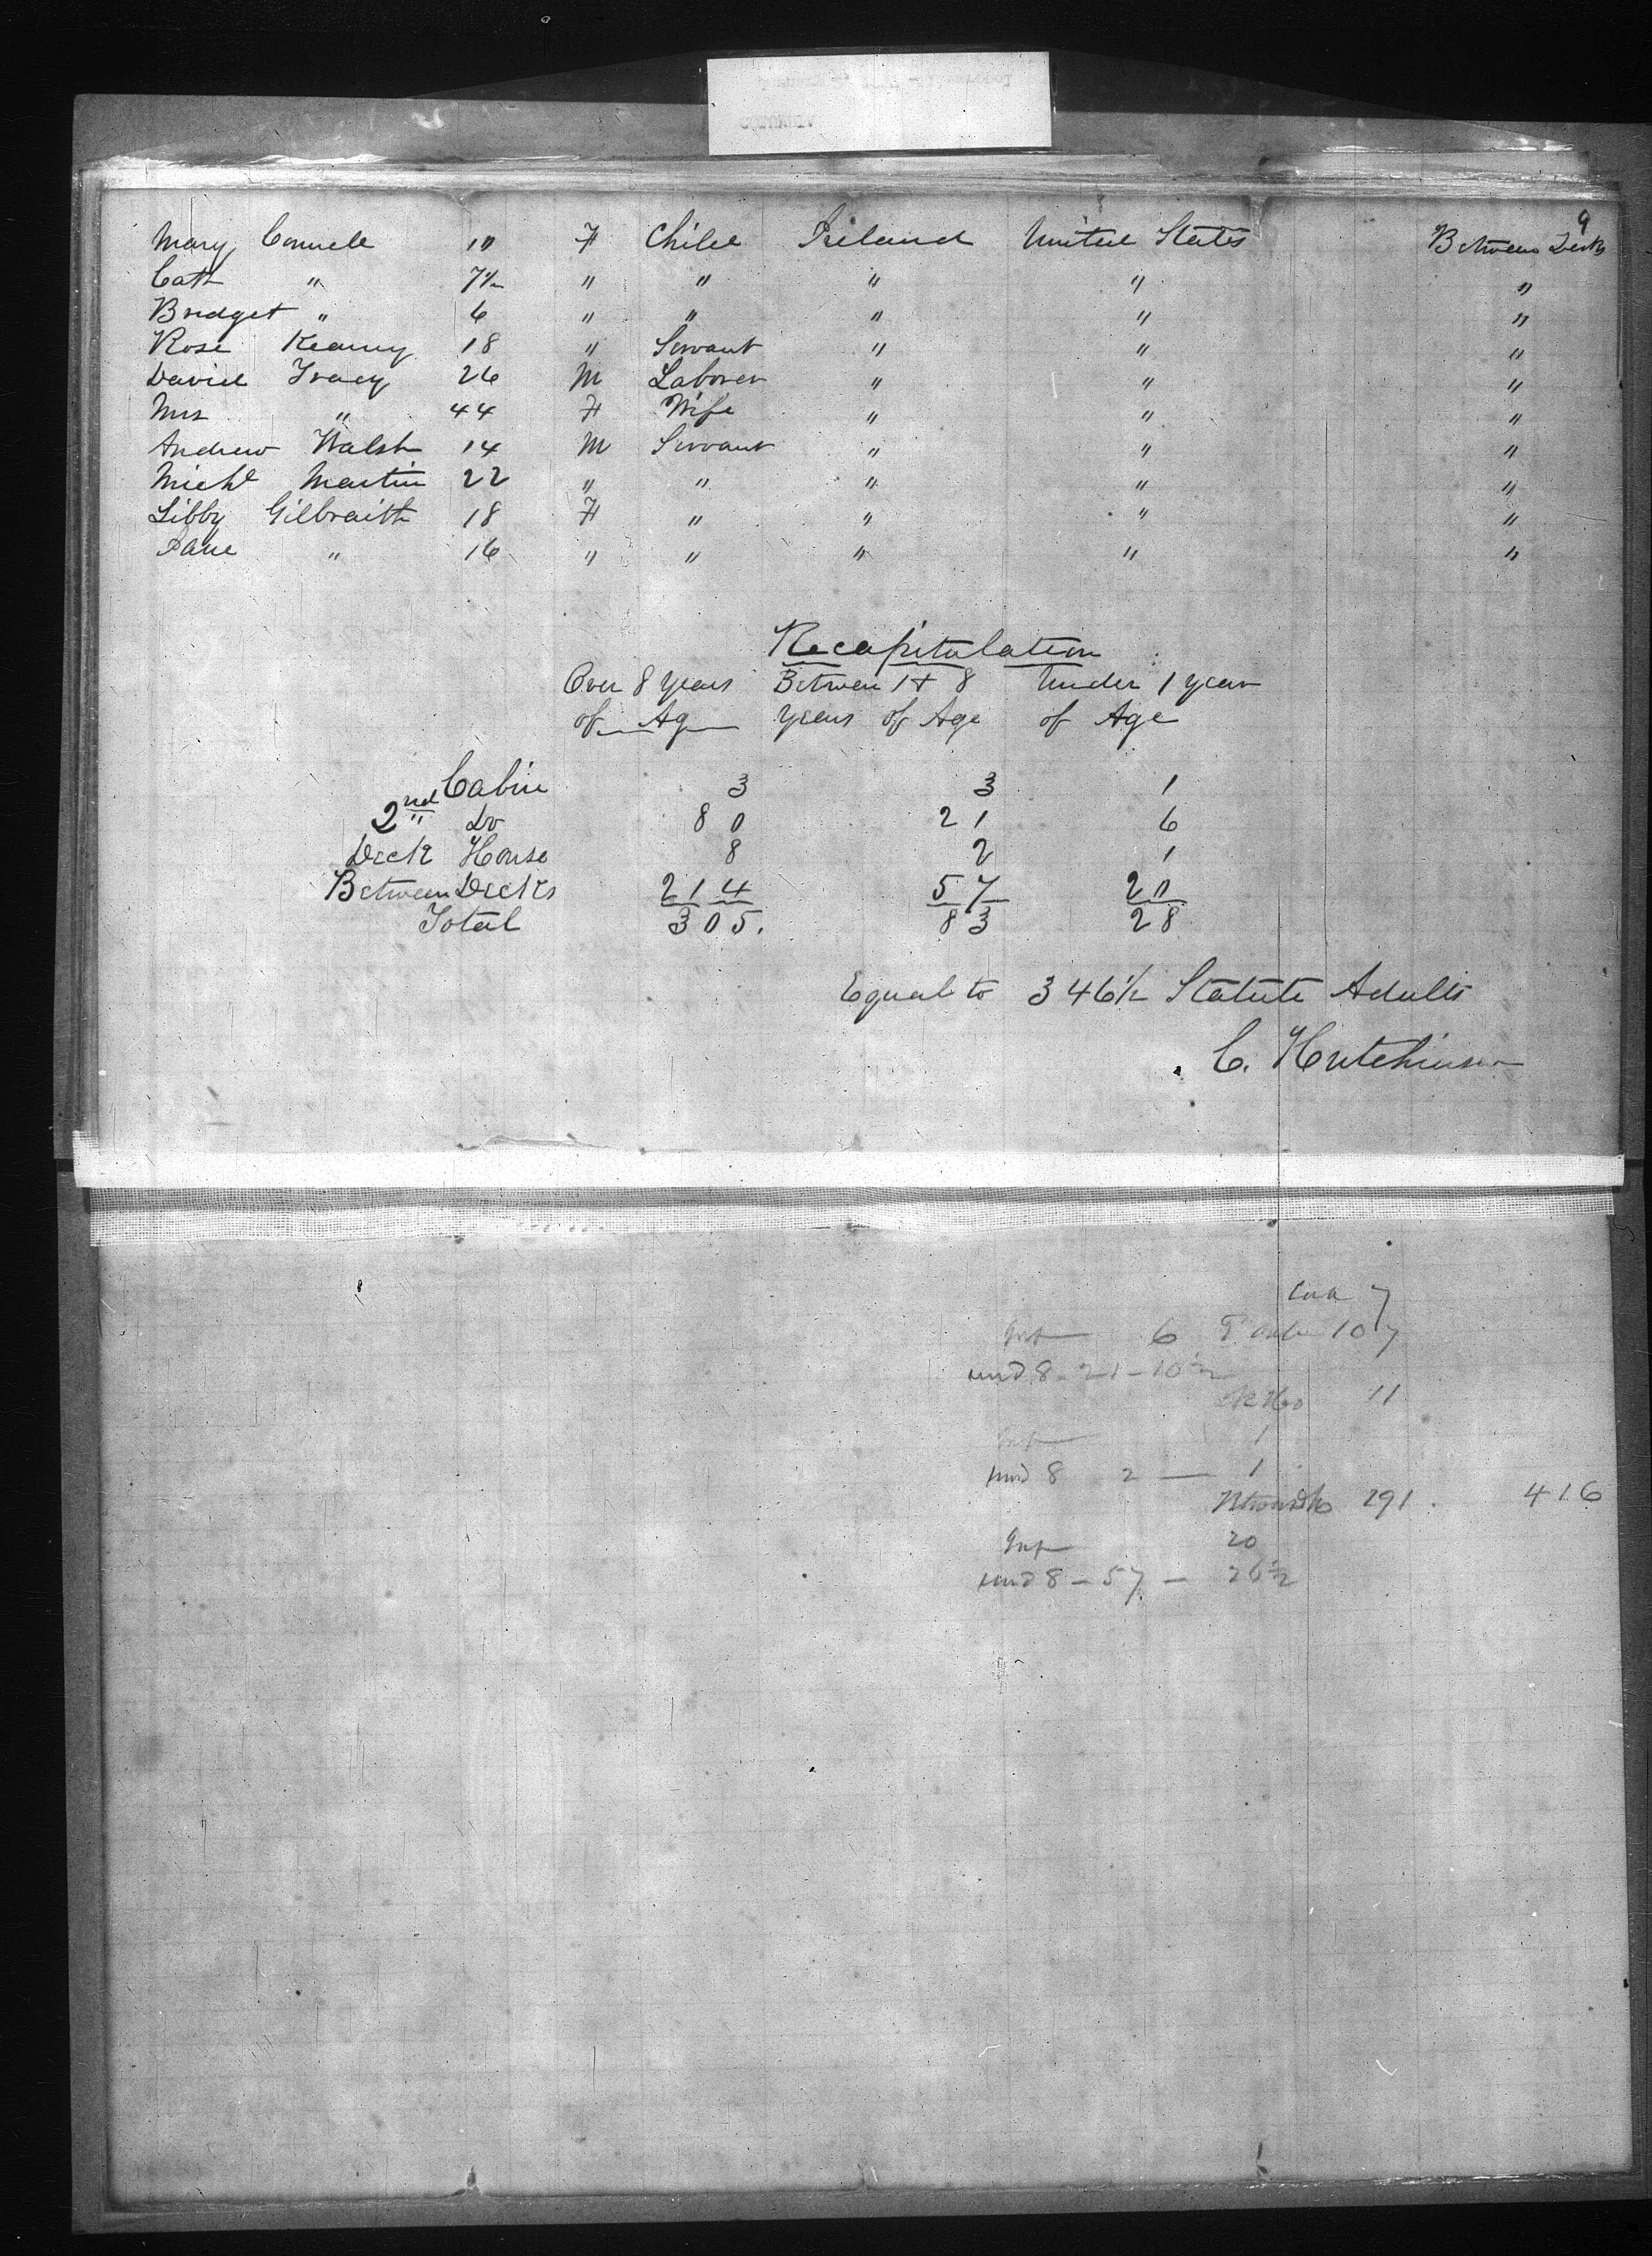 9
Mary Connell 10 F Child Ireland United States Between Decks
Cath " 7½ " " " " "
Bridget " 6 " " " " "
Rose Kearny 18 " Servant " " "
David Tracy 26 M Laborer " " "
Mrs " 44 F Wife " " "
Andrew Walsh 14 M Servant " " "
Michl Martin 22 " " " " "
Libby Gilbraith 18 F " " " "
Jane " 16 " " " " "
Recapitulation
Over 8 Years Between 1 & 8 Under 1 year
of Ag years of Age of Age
Cabin 3 3 1
2nd Do 80 21 6
Deck House 8 2 1
Between Decks 214 57 20
Total 305. 83 28
Equal to 346½ Statute Adults
C. Hutchinson
7
Inf 6 107
und 8 - 21 - 10½
11
Inf 1
und 8 2 — 1
291. 416
Inf 20
und 8 - 57 - 26½